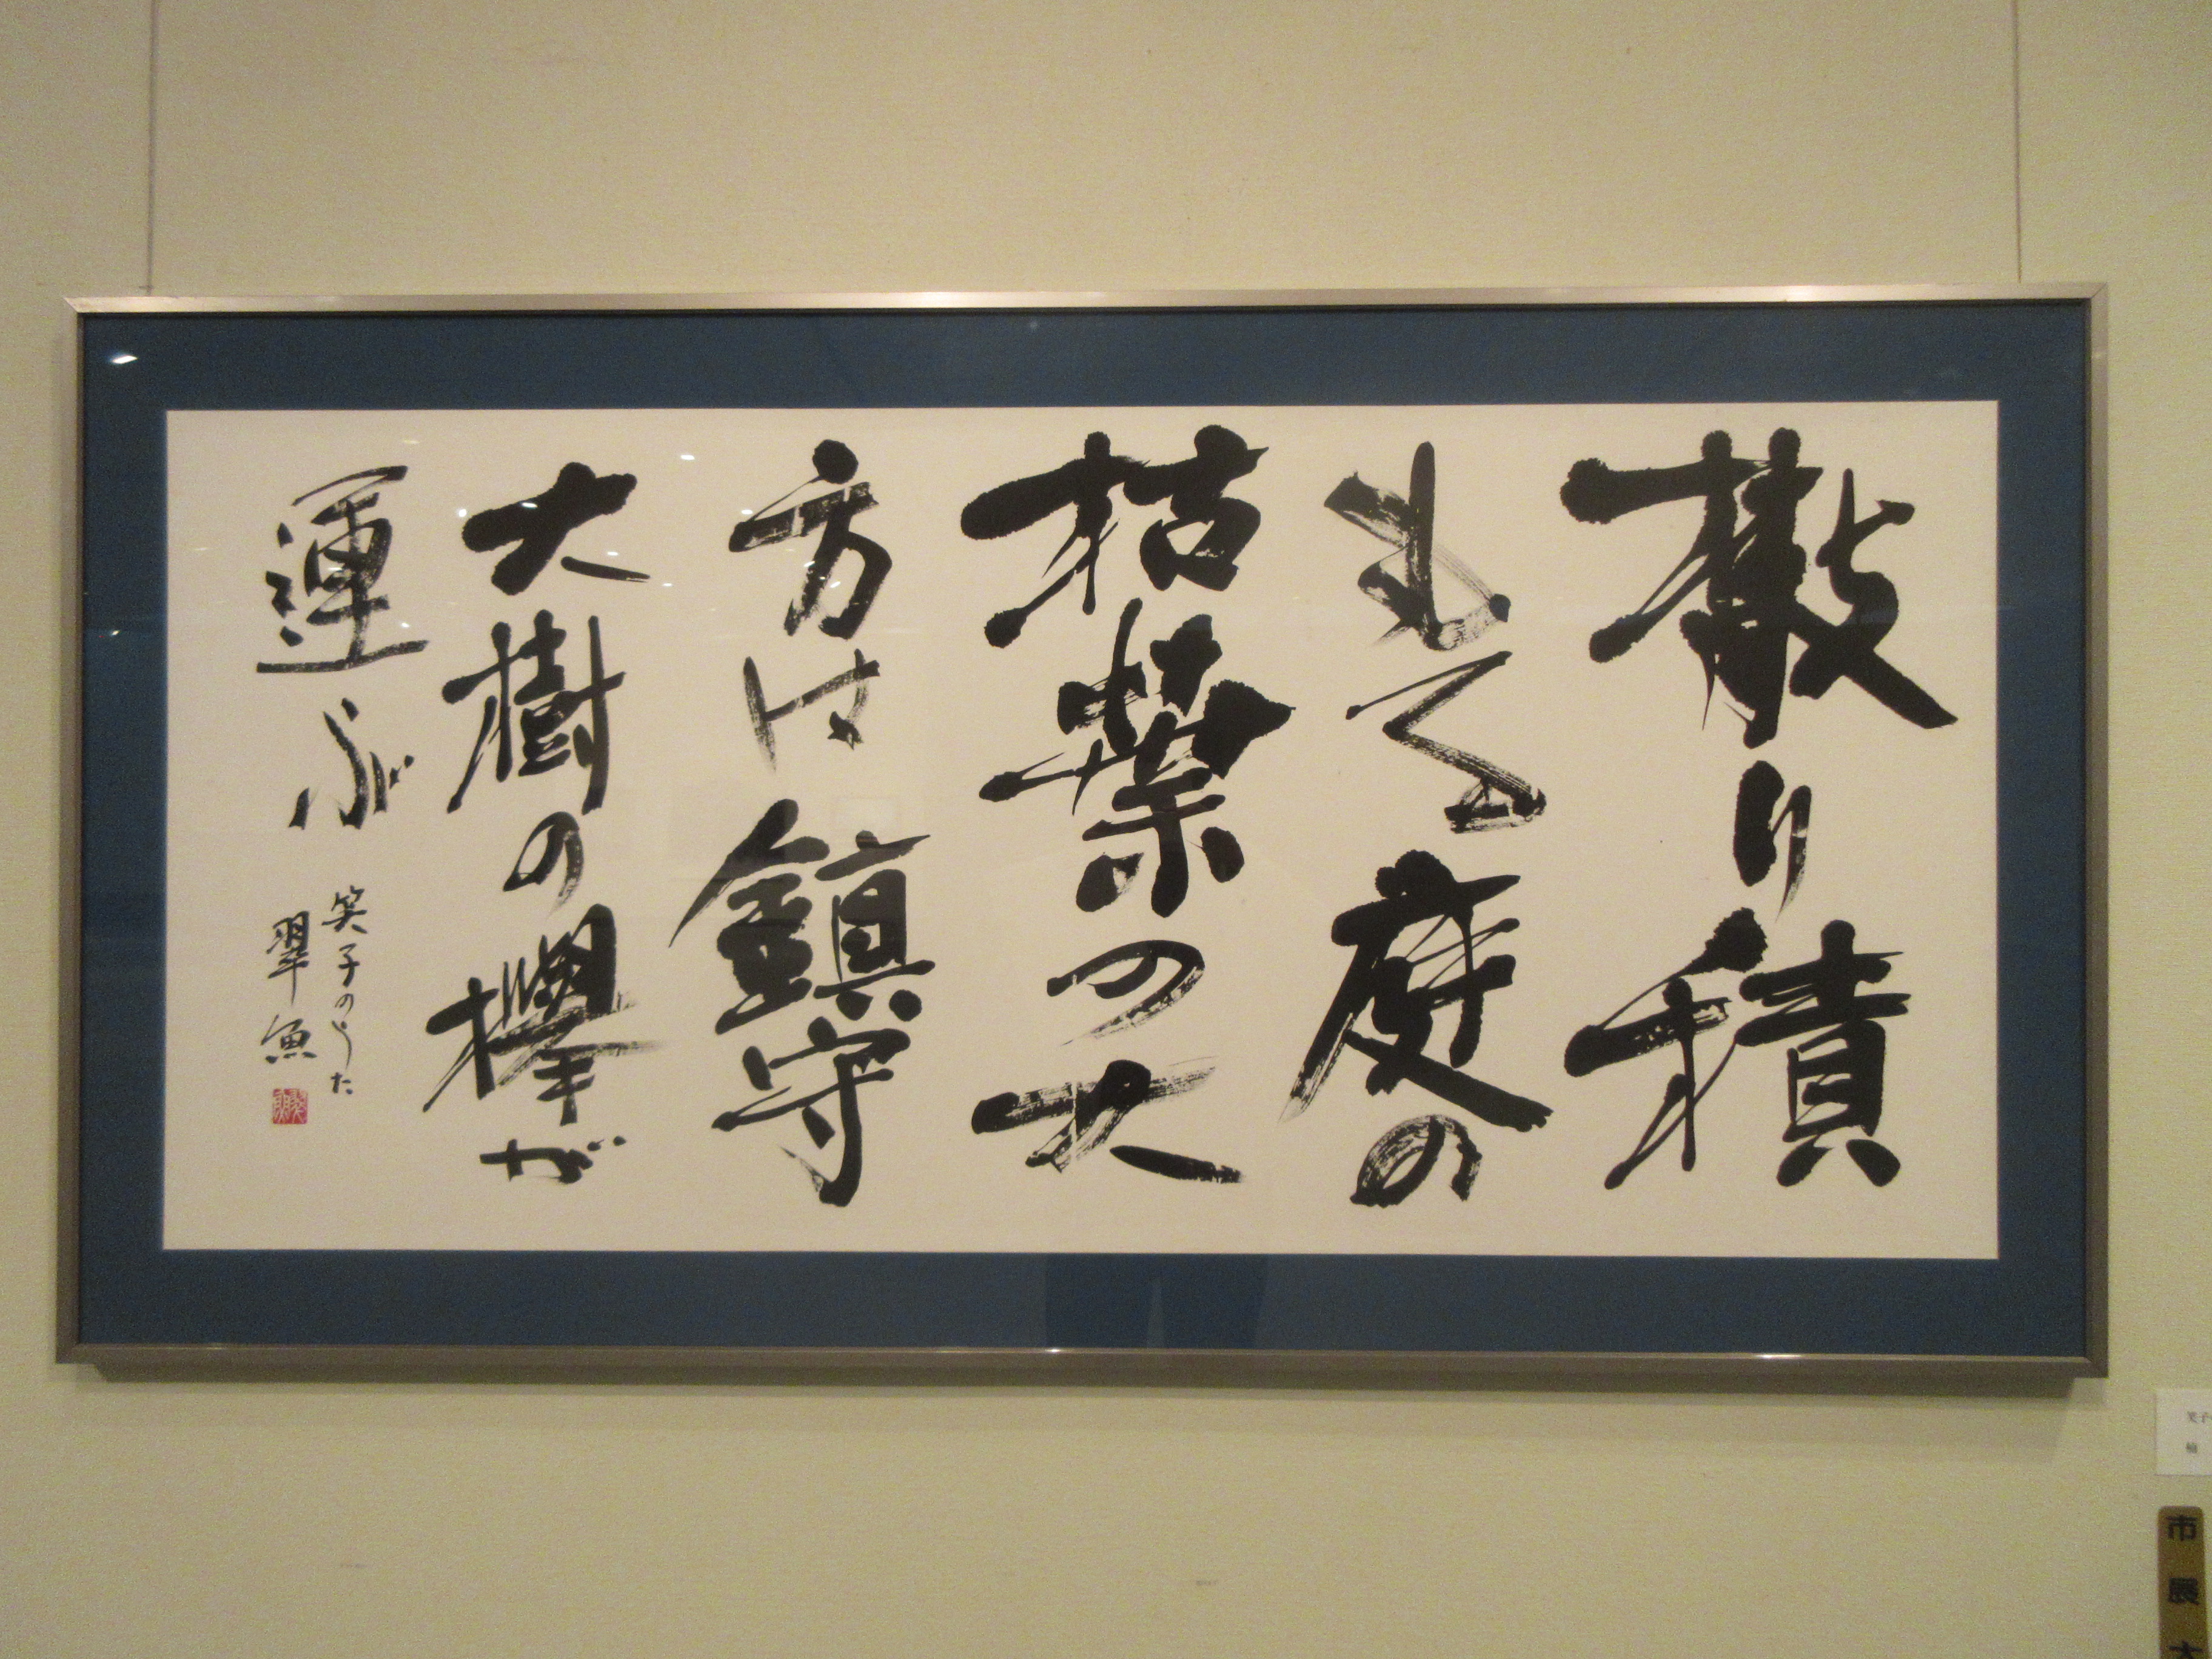 散り積
もる庭の
枯葉の大
方は鎮守
大樹の欅が
運ぶ
笑子のうた
翠魚
笑子
市展大